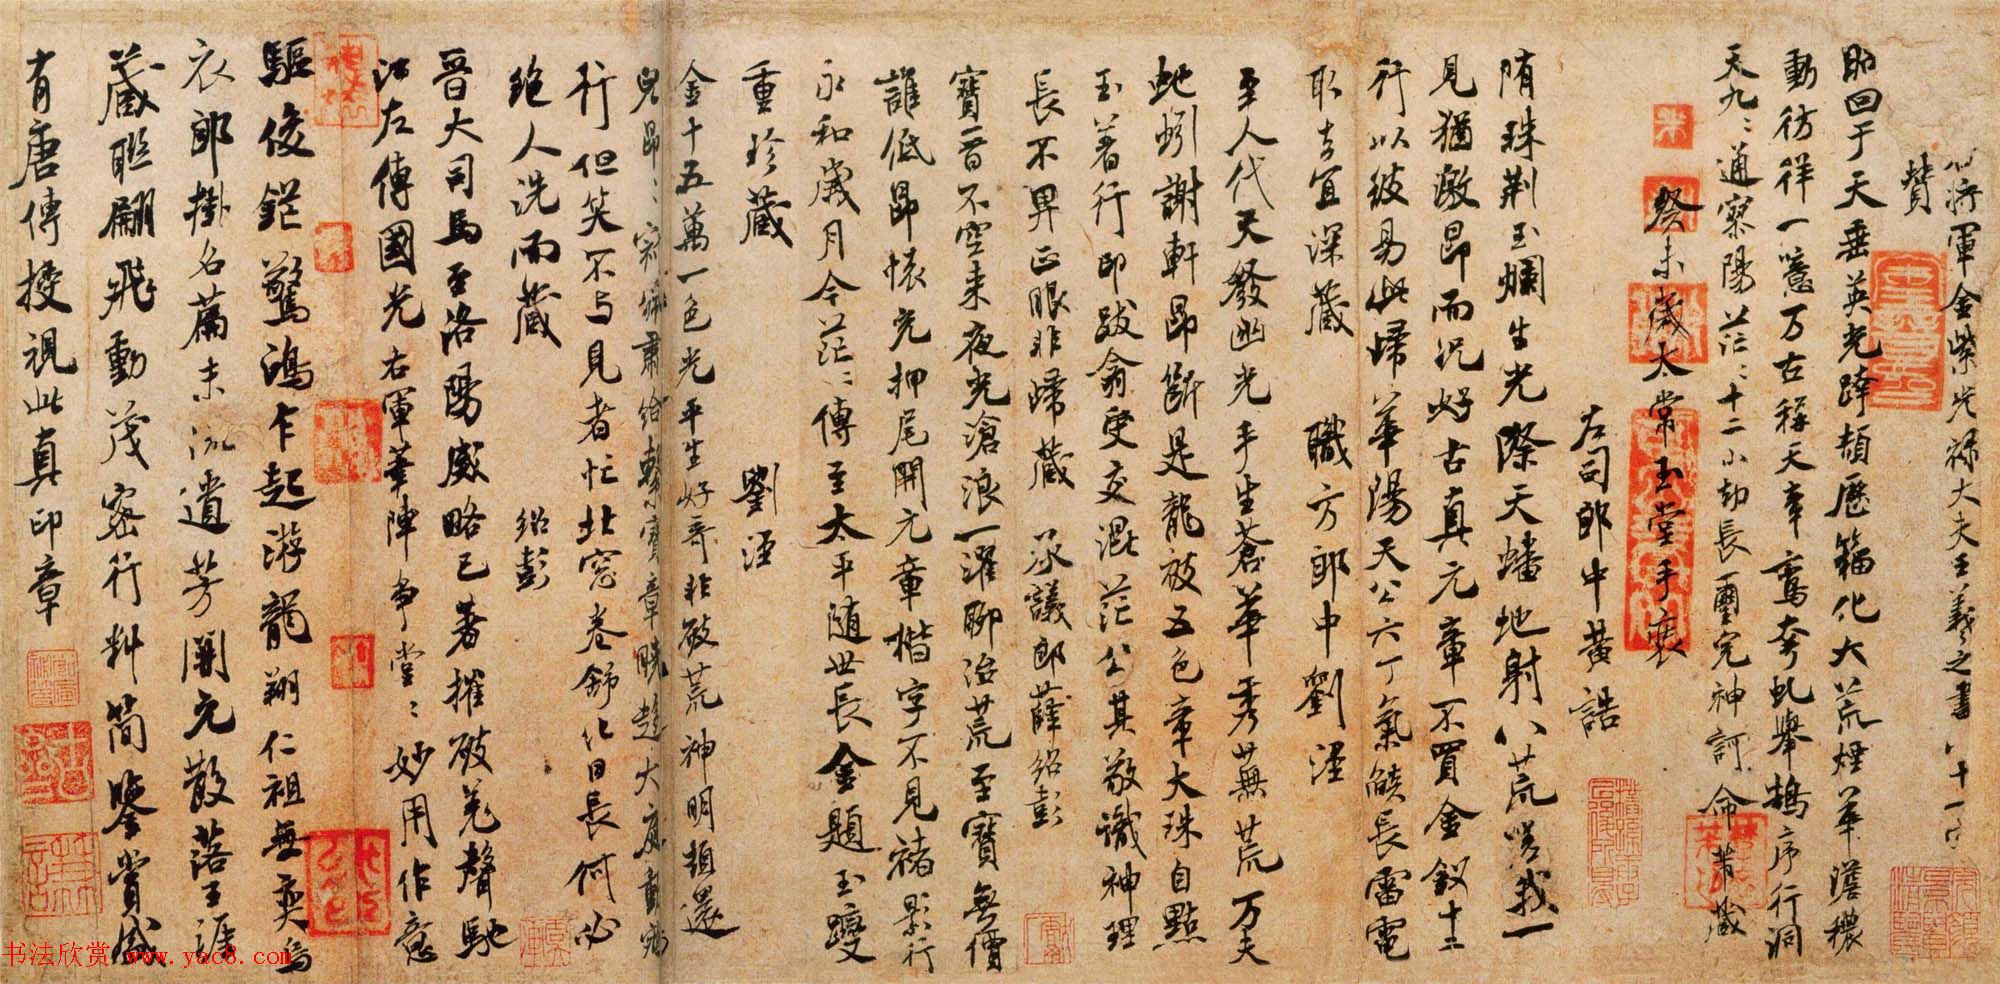 右將軍金紫光祿大夫王羲之書八十一字
贊
昭回于天垂英光跨頡歷籀化大荒煙華澹穠
動彷徉一噫万古稱天章鸞夸虬舉鵠序行洞
天九〻通寥陽茫〻十二小劫長璽完神訶命芾藏
癸未歲太常玉堂手裝
左司郎中黃誥
隋珠荆玉爛生光際天蟠地射八荒嗟我一
見猶激昂而況好古真元章不買金釵十二
行以彼易此歸華陽天公六丁氣燄長雷電
取去宜深藏 職方郎中劉涇
至人代天發幽光手生蒼華秀蕪荒万夫
虵蚓謝軒昂斷是龍被五色章大珠自點
玉着行印跋翕雙交混茫公其敬識神理
長不畀正眼非歸藏 承議郎薛紹彭
寶晉不空來夜光滄浪一濯聊治荒至寶無價
誰低昂懷充押尾開元章楷字不見褚影行
永和歲月今茫〻傳至太平隨世長金題玉躞
重珍藏
劉涇
金十五萬一色光平生好奇非破荒神明頓還
行但笑不与見者忙北窗卷舒化日長何必
絶人洗而藏
紹彭
晉大司馬至洛陽威略已著摧破羌聲馳
江左傳國光右軍華陣爭堂〻妙用作意
驅俊鋩驚鴻乍起游龍翔仁祖無奕為
衣郎掛名篇末流遺芳開元散落王涯
藏聯翩飛動茂密行料簡鑒賞咸
有唐傳授視此真印章
书法欣赏 www.yac8.com